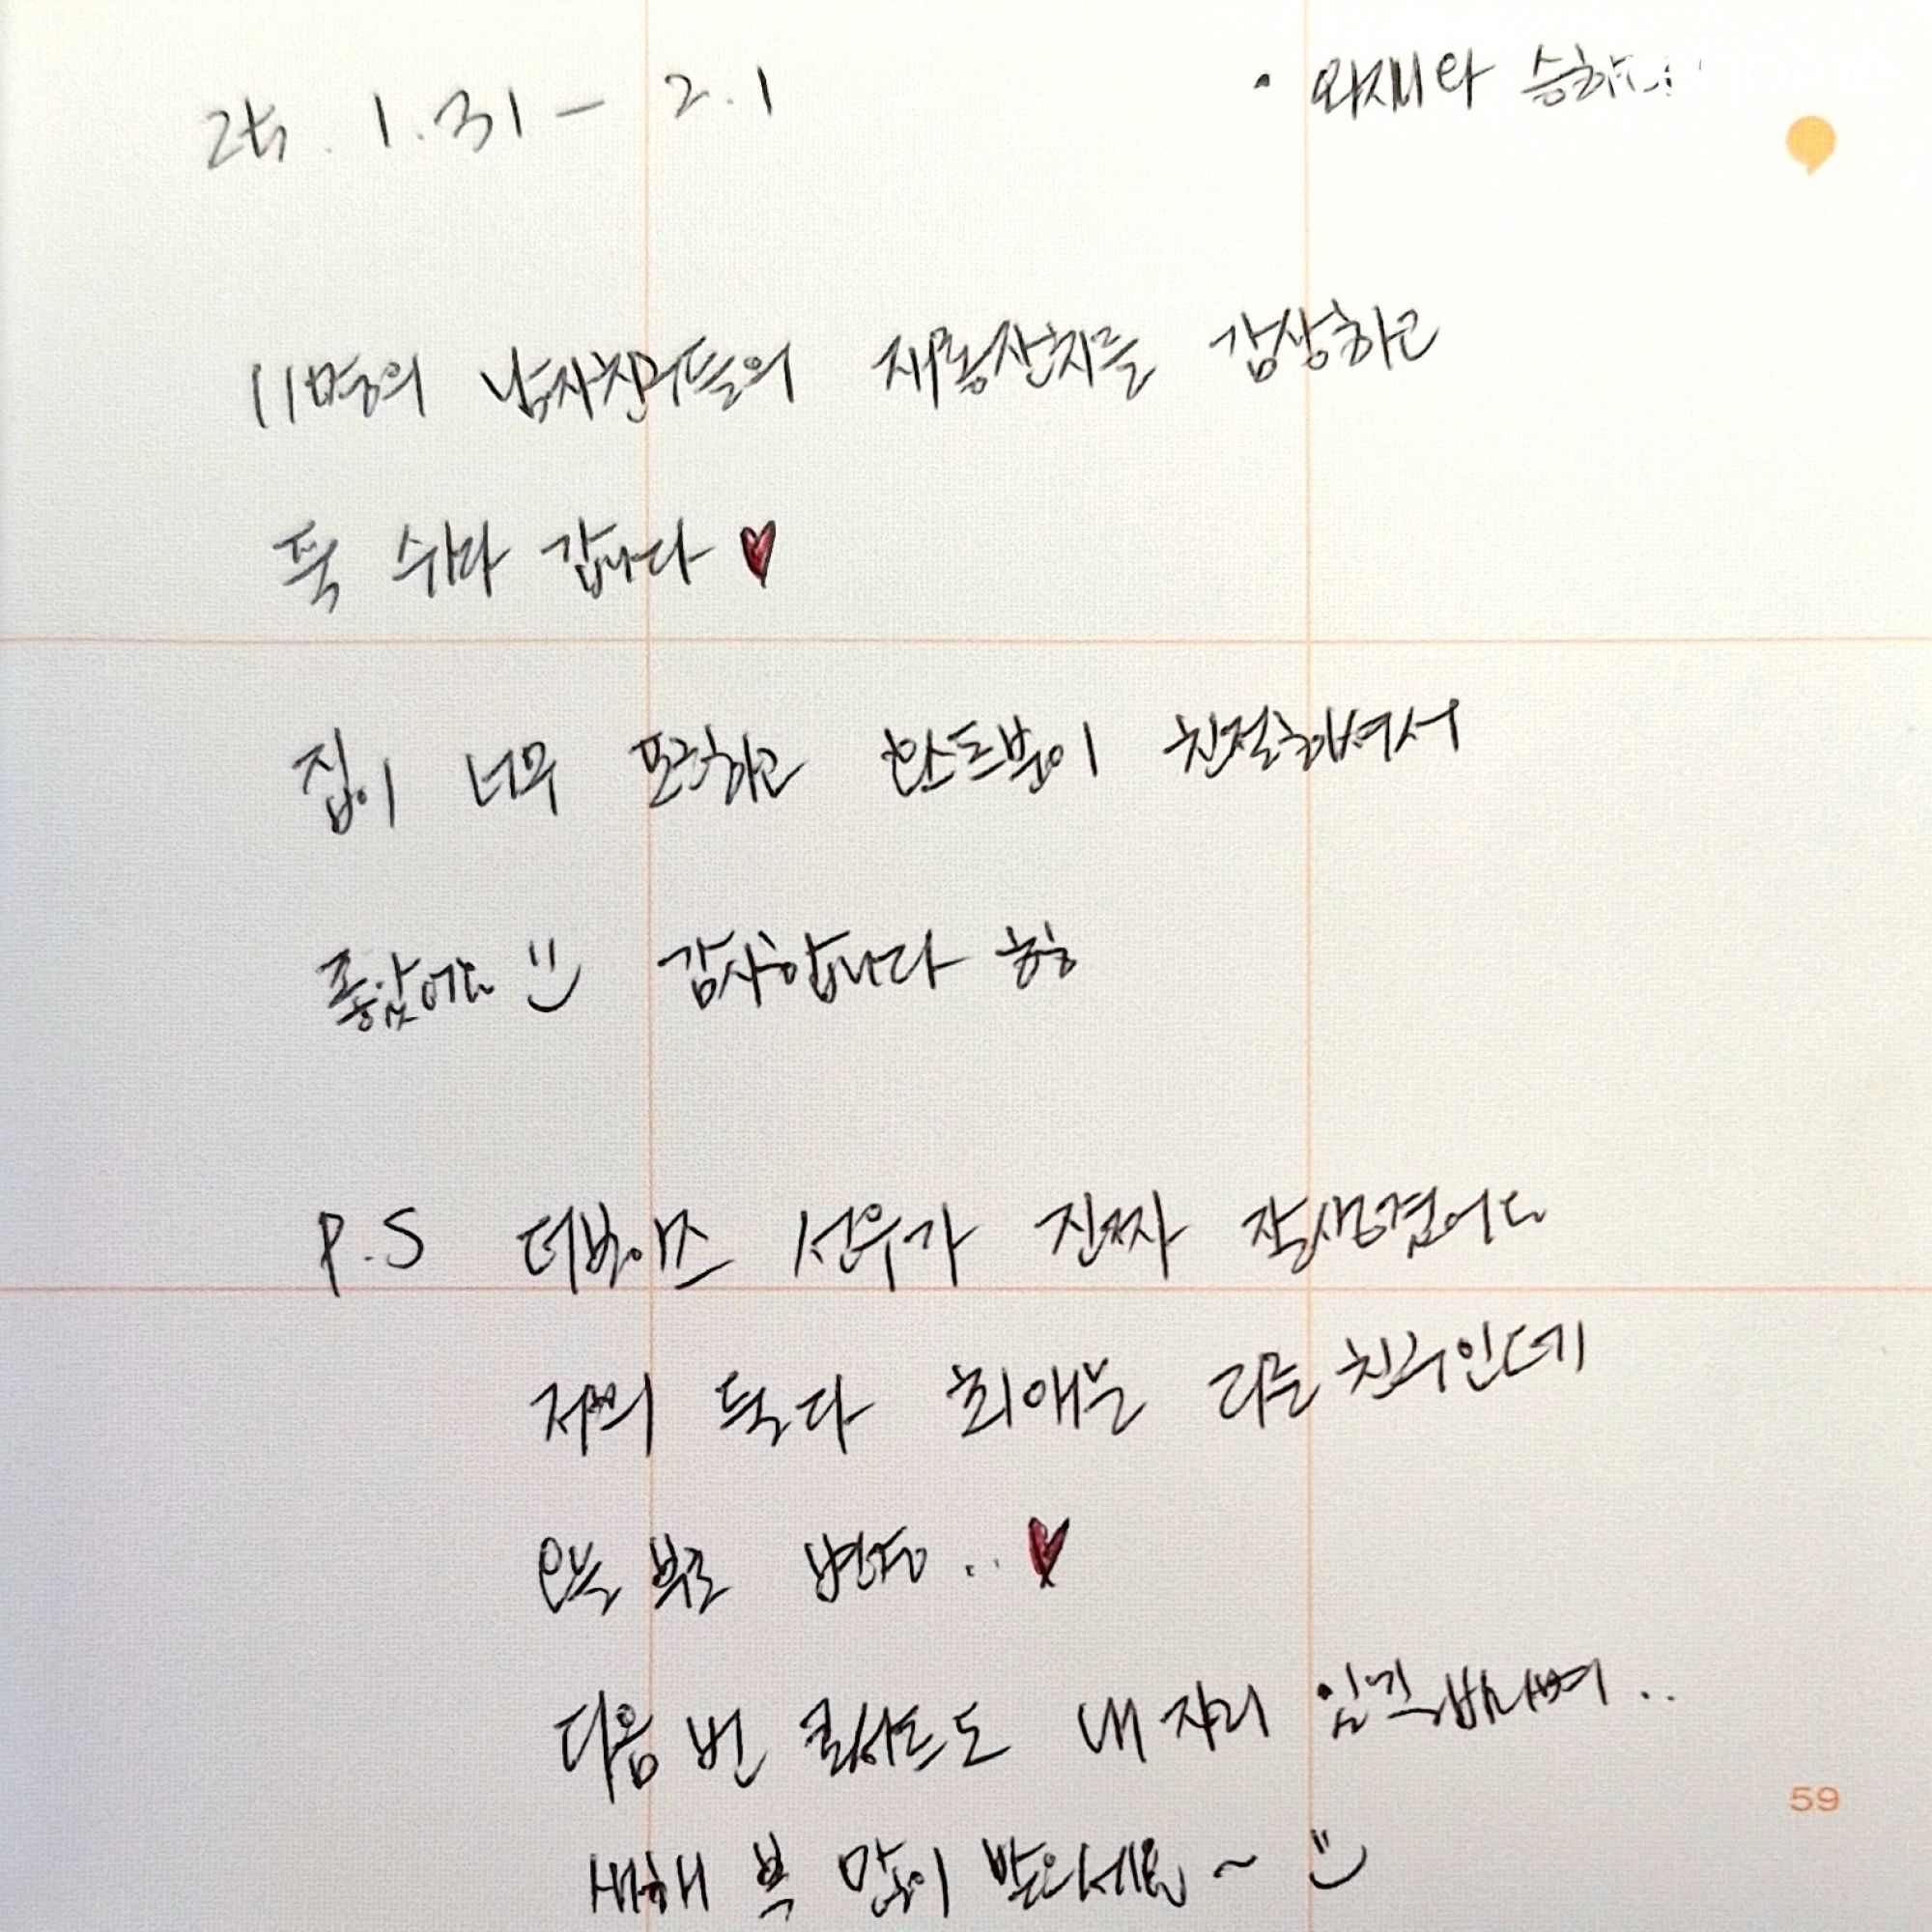 25. 1. 31 - 2. 1
11명의 남자친구들의 재롱잔치를 감상하고
푹 쉬다 갑니다 ♥
집이 너무 포근하고 호스트분이 친절하셔서
좋았어요 :) 감사합니다 ㅎㅎ
P.S 더보이즈 선우가 진짜 잘생겼어요
저희 둘다 최애는 다른 친구인데
오늘부로 변동.. ♥
다음 번 콘서트도 내 자리 있길 바라며..
새해 복 많이 받으세요~ :)
59